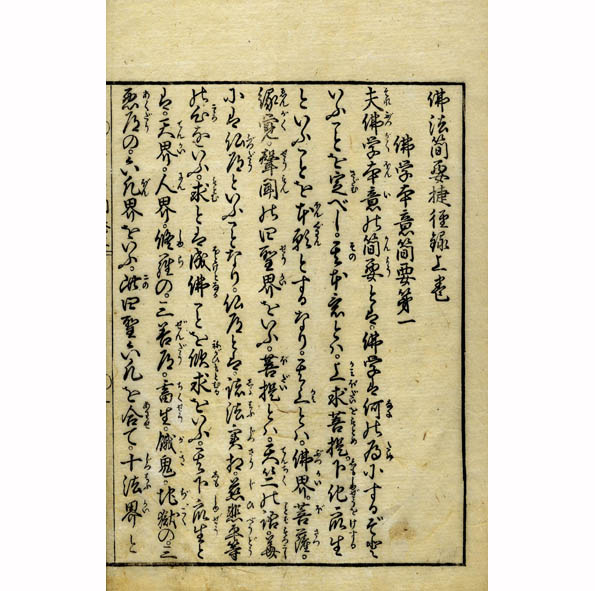 佛法簡要捷徑録上巻
佛学本意簡要第一
夫佛学本意の簡要とは。佛学は何の為にするぞと
いふことを定べし。其本意とハ。上求菩提。下化衆生
といふことを本願とするなり。其上とハ。佛界。菩薩。
縁覚。聲聞の四聖界をいふ。菩提とハ。天竺の語
には仏道といふことなり。仏道とは。諸法実相。慈悲平等
の をいふ。求とは成佛ことを欲求をいふ。其下衆生と
は。天界。人界。修羅の。三善道。畜生。餓鬼。地獄の。三
悪道の。六凡界をいふ。此四聖六凡を合て。十法界と